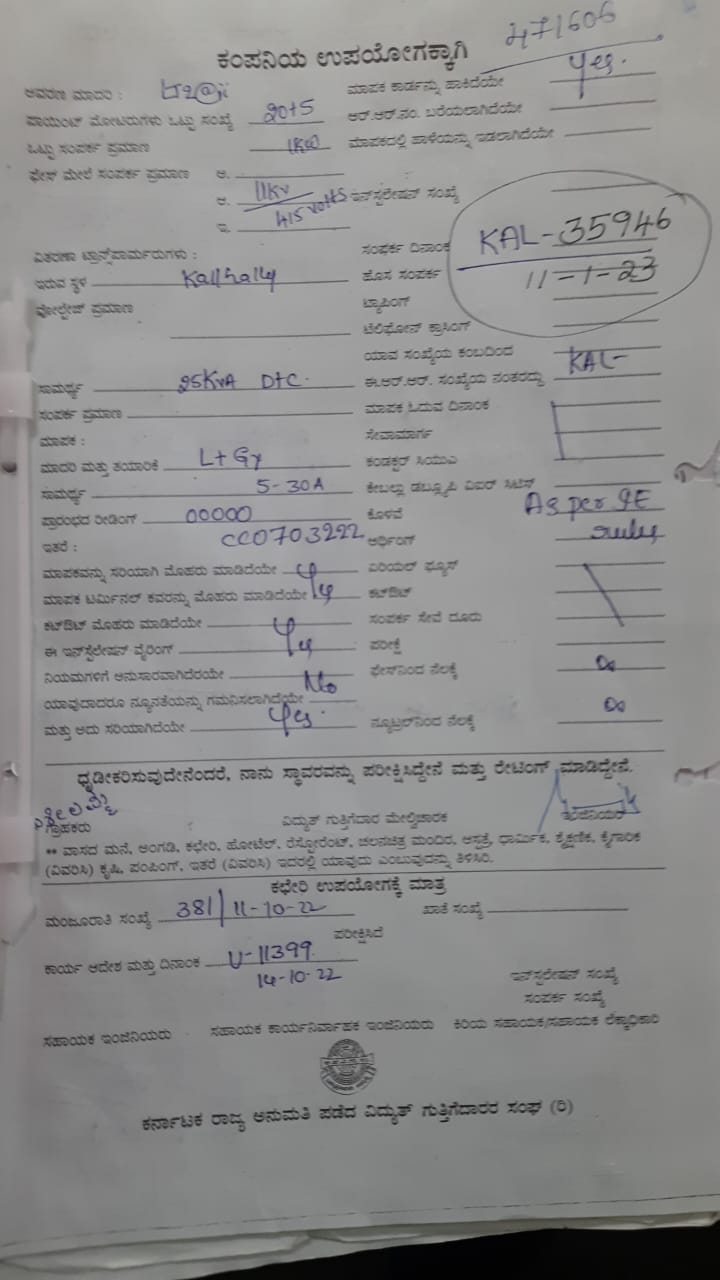 471606
ಕಂಪನಿಯ ಉಪಯೋಗಕ್ಕಾಗಿ
ಆವರಣ ಮಾದರಿ : ಮಾಪಕ ಕಾರ್ಡನ್ನು ಹಾಕಿದೆಯೇ Yes.
ಪಾಯಿಂಟ್ ಮೋಟರುಗಳು ಒಟ್ಟು ಸಂಖ್ಯೆ 20+5 ಆರ್.ಆರ್.ನಂ. ಬರೆಯಲಾಗಿದೆಯೇ
ಒಟ್ಟು ಸಂಪರ್ಕ ಪ್ರಮಾಣ 1KW ಮಾಪಕದಲ್ಲಿ ಹಾಳೆಯನ್ನು ಇಡಲಾಗಿದೆಯೇ
ಫೇಸ್ ಮೇಲೆ ಸಂಪರ್ಕ ಪ್ರಮಾಣ ಅ.
ಆ. 11KV ಇನ್‌ಸ್ಟಲೇಷನ್ ಸಂಖ್ಯೆ
ಇ. 415 volts
ವಿತರಣಾ ಟ್ರಾನ್ಸ್‌ಫಾರ್ಮರುಗಳು : ಸಂಪರ್ಕ ದಿನಾಂಕ KAL-35946
ಇರುವ ಸ್ಥಳ Kallhally ಹೊಸ ಸಂಪರ್ಕ 11-1-23
ವೋಲ್ಟೇಜ್ ಪ್ರಮಾಣ ಟ್ಯಾಪಿಂಗ್
ಟೆಲಿಫೋನ್ ಕ್ರಾಸಿಂಗ್
ಯಾವ ಸಂಖ್ಯೆಯ ಕಂಬದಿಂದ
ಸಾಮರ್ಥ್ಯ 25KVA DTC. ಈ.ಆರ್.ಆರ್. ಸಂಖ್ಯೆಯ ನಂತರದ್ದು KAL-
ಸಂಪರ್ಕ ಪ್ರಮಾಣ ಮಾಪಕ ಓದುವ ದಿನಾಂಕ
ಮಾಪಕ : ಸೇವಾಮಾರ್ಗ
ಮಾದರಿ ಮತ್ತು ತಯಾರಿಕೆ L+Gy ಕಂಡಕ್ಟರ್ ಸಿಯುಎ
ಸಾಮರ್ಥ್ಯ 5-30A ಕೇಬಲ್ಲು ಡಬ್ಲ್ಯೂಪಿ ವಿಐಆರ್ ಸಿಟಿಸ್
ಪ್ರಾರಂಭದ ರೀಡಿಂಗ್ 00000 ಕೊಳವೆ As per IE
ಇತರೆ : CC0703222 ಅರ್ಥಿಂಗ್ rules
ಮಾಪಕವನ್ನು ಸರಿಯಾಗಿ ಮೊಹರು ಮಾಡಿದೆಯೇ ಏರಿಯಲ್ ಫ್ಯೂಸ್
ಮಾಪಕ ಟರ್ಮಿನಲ್ ಕವರನ್ನು ಮೊಹರು ಮಾಡಿದೆಯೇ ಕಟ್‌ಔಟ್
ಕಟ್‌ಔಟ್ ಮೊಹರು ಮಾಡಿದೆಯೇ ಸಂಪರ್ಕ ಸೇವೆ ದೂರು
ಈ ಇನ್‌ಸ್ಟಲೇಷನ್ ವೈರಿಂಗ್ ಪರೀಕ್ಷೆ
ನಿಯಮಗಳಿಗೆ ಅನುಸಾರವಾಗಿದೆರಯೇ ಫೇಸ್‌ನಿಂದ ನೆಲಕ್ಕೆ
ಯಾವುದಾದರೂ ನ್ಯೂನತೆಯನ್ನು ಗಮನಿಸಲಾಗಿದೆಯೇ No
ಮತ್ತು ಅದು ಸರಿಯಾಗಿದೆಯೇ Yes. ನ್ಯೂಟ್ರಲ್‌ನಿಂದ ನೆಲಕ್ಕೆ
ಧೃಡೀಕರಿಸುವುದೇನೆಂದರೆ, ನಾನು ಸ್ಥಾವರವನ್ನು ಪರೀಕ್ಷಿಸಿದ್ದೇನೆ ಮತ್ತು ರೇಟಿಂಗ್ ಮಾಡಿದ್ದೇನೆ.
ಗ್ರಾಹಕರು ವಿದ್ಯುತ್ ಗುತ್ತಿಗೆದಾರ ಮೇಲ್ವಿಚಾರಕ ಇಂಜಿನಿಯರ್
** ವಾಸದ ಮನೆ, ಅಂಗಡಿ, ಕಛೇರಿ, ಹೋಟೆಲ್, ರೆಸ್ಟೋರೆಂಟ್, ಚಲನಚಿತ್ರ ಮಂದಿರ, ಆಸ್ಪತ್ರೆ, ಧಾರ್ಮಿಕ, ಶೈಕ್ಷಣಿಕ, ಕೈಗಾರಿಕ
(ವಿವರಿಸಿ) ಕೃಷಿ, ಪಂಪಿಂಗ್, ಇತರೆ (ವಿವರಿಸಿ) ಇದರಲ್ಲಿ ಯಾವುದು ಎಂಬುವುದನ್ನು ತಿಳಿಸಿರಿ.
ಕಛೇರಿ ಉಪಯೋಗಕ್ಕೆ ಮಾತ್ರ
ಮಂಜೂರಾತಿ ಸಂಖ್ಯೆ 381/11-10-22 ಖಾತೆ ಸಂಖ್ಯೆ
ಪರೀಕ್ಷಿಸಿದೆ
ಕಾರ್ಯ ಆದೇಶ ಮತ್ತು ದಿನಾಂಕ U-11399
14-10-22 ಇನ್‌ಸ್ಟಲೇಷನ್ ಸಂಖ್ಯೆ
ಸಂಪರ್ಕ ಸಂಖ್ಯೆ
ಸಹಾಯಕ ಇಂಜಿನಿಯರು ಸಹಾಯಕ ಕಾರ್ಯನಿರ್ವಾಹಕ ಇಂಜಿನಿಯರು ಕಿರಿಯ ಸಹಾಯಕ/ಸಹಾಯಕ ಲೆಕ್ಕಾಧಿಕಾರಿ
ಕರ್ನಾಟಕ ರಾಜ್ಯ ಅನುಮತಿ ಪಡೆದ ವಿದ್ಯುತ್ ಗುತ್ತಿಗೆದಾರರ ಸಂಘ (ರಿ)